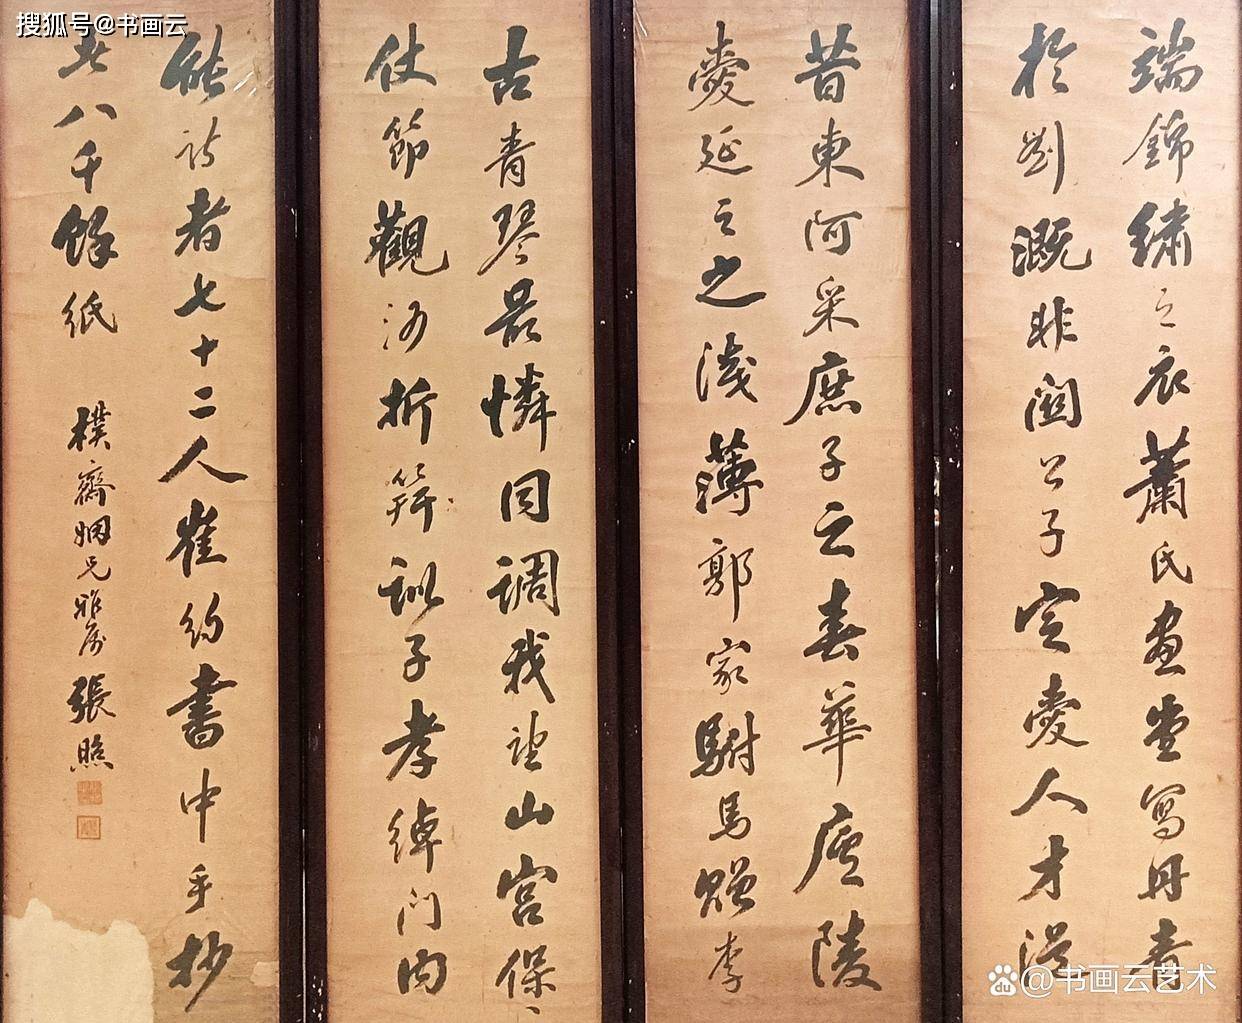 搜狐号@书画云
端錦繡之衣蕭氏畫堂寫丹青
於劉溉非関公子定愛人才從
昔東阿采庶子之春華廬陵
愛延之之淺薄郭家駙馬贈李
古青琴最憐同調我望山宮保
仗節觀河折笄訓子孝綽门內
能詩者七十二人崔約書中手抄
者八千餘紙
樸齋姻兄雅屬 張照
@书画云艺术